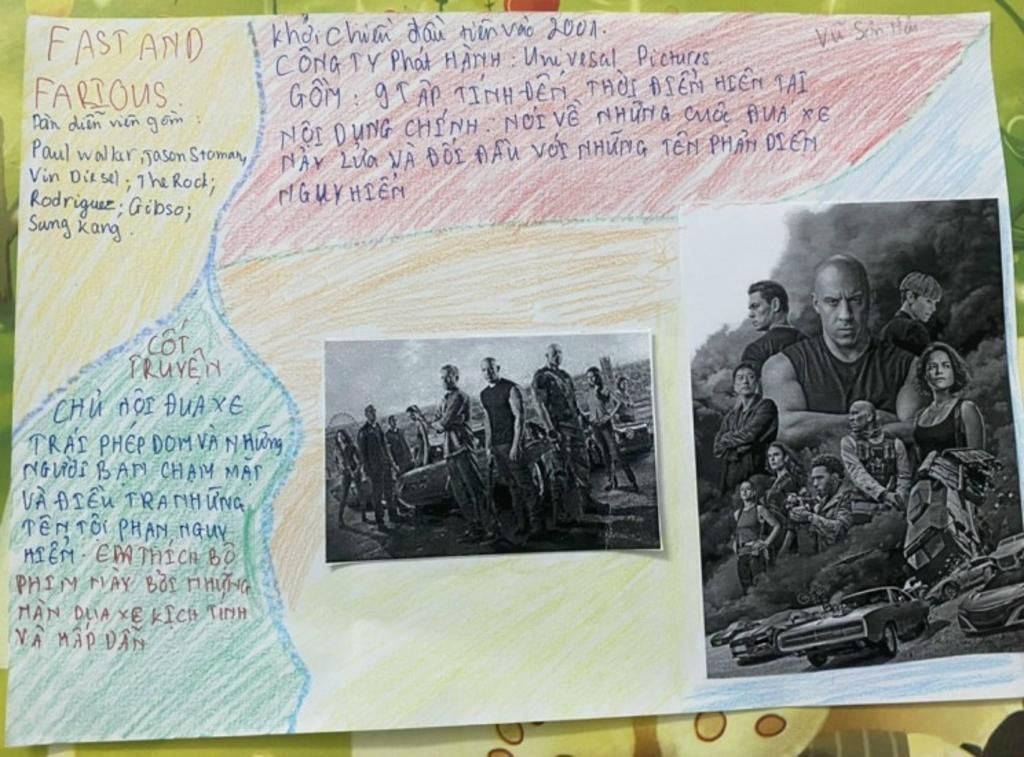 FAST AND
FARIOUS
Dàn diễn viên gồm :
Paul walker, Jason Stoman,
Vin Diesel; The Rock;
Rodriguez; Gibso;
Sung kang.
khởi chiếu đầu tiên vào 2001.
CÔNG TY Phát HÀNH : Univesal Pictures.
GỒM : 9 TẬP TÍNH ĐẾN THỜI ĐIỂM HIỆN TẠI
NỘI DUNG CHÍNH : NÓI VỀ NHỮNG CUỘC ĐUA XE
NẢY LỬA VÀ ĐỐI ĐẦU VỚI NHỮNG TÊN PHẢN DIỆN
NGUY HIỂM
Vũ Sơn Hải
CỐT
TRUYỆN
CHỦ ĐỘI ĐUA XE
TRÁI PHÉP DOM VÀ NHỮNG
NGƯỜI BẠN CHẠM MẶT
VÀ ĐIỀU TRA NHỮNG
TÊN TỘI PHẠM NGUY
HIỂM. EM THÍCH BỘ
PHIM NÀY BỞI NHỮNG
MÀN ĐUA XE KỊCH TÍNH
VÀ HẤP DẪN